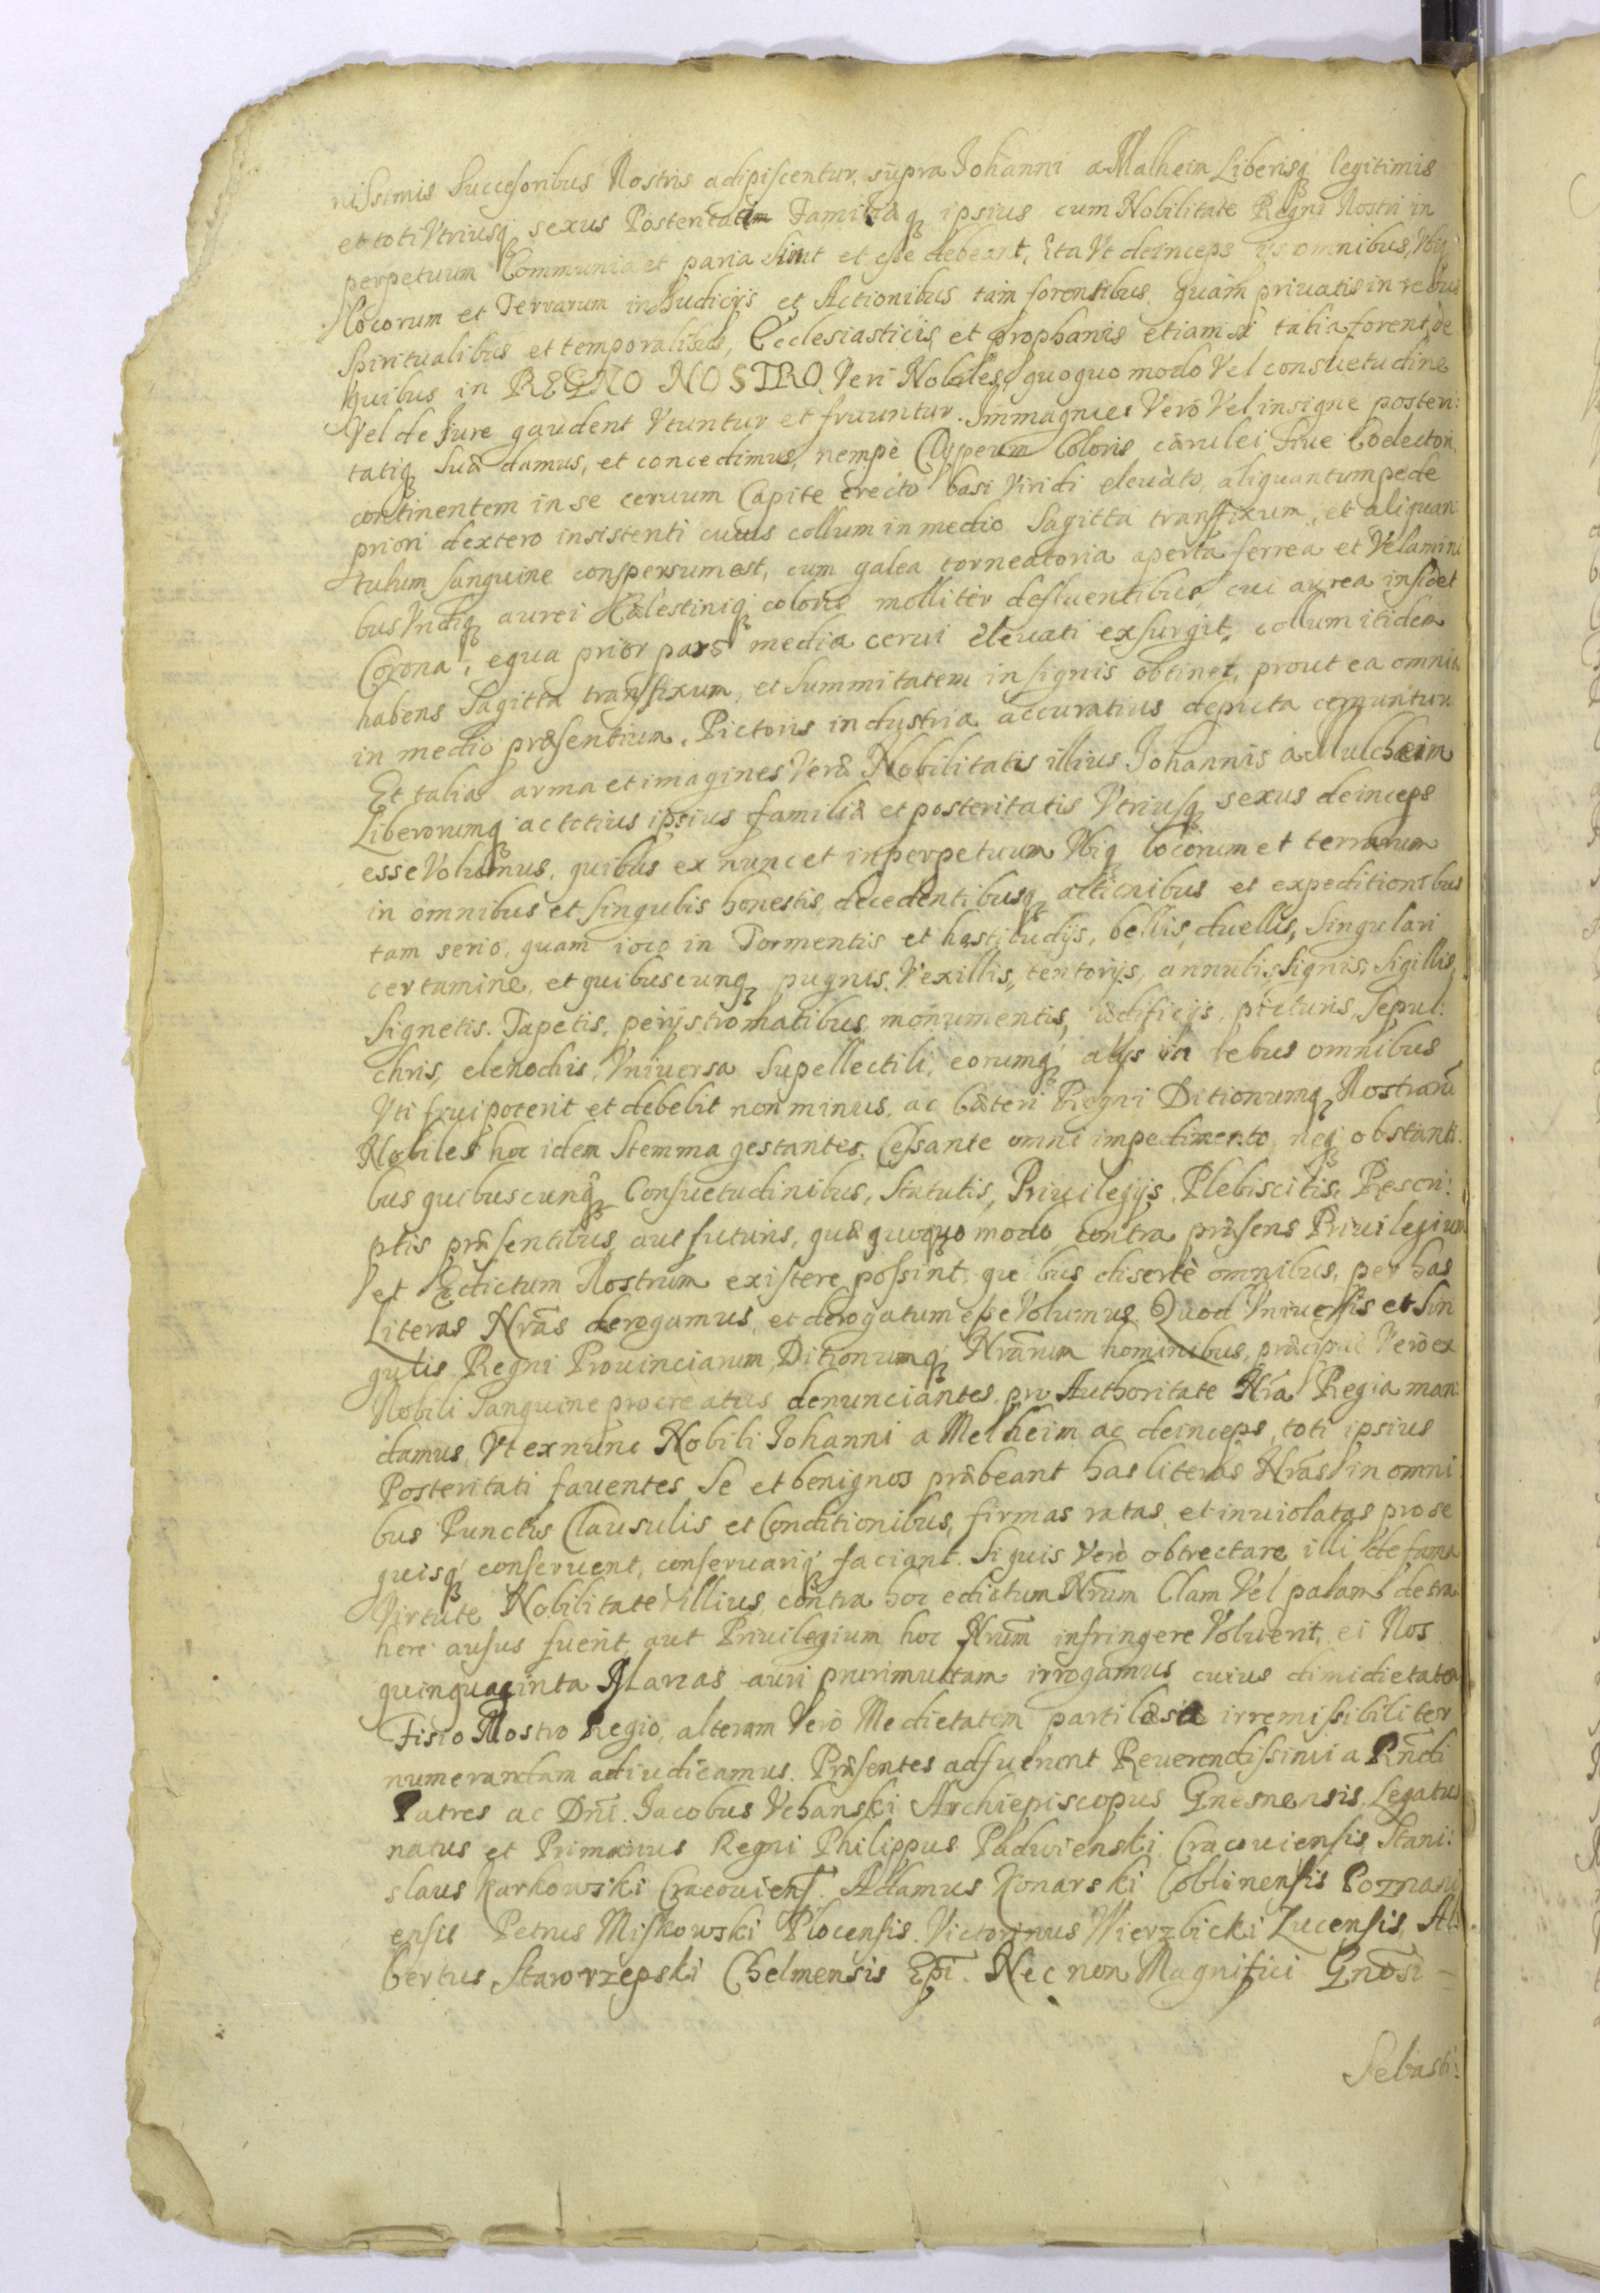 nissimis Successoribus Nostris adipiscentur, supra Johanni a Malheim Liberisq legitimis
et toti Vtriusq sexus Posteritatim Familiæq ipsius cum Nobilitate Regni Nostri in
perpetuum Communia et paria Sint et esse debeant, Ita Vt deinceps ijs omnibus, Vbiq
Locorum et Terrarum in Iudicijs et Actionibus tam forensibus quàm priuatis in rebus
Spiritualibus et temporalibus, Ecclesiasticis et prophanis etiamsi talia forent, de
quibus in REGNO NOSTRO Veri Nobiles quoquo modo Vel consuetudine
Vel de Jure gaudent Vtuntur et fruuntur. Immagines Verò Vel insigne posteri:
tatiq suæ damus, et concedimus, nempè Clypeum Coloris cærulei siue Coelestini
continentem in se ceruum Capite erecto basi Viridi eleuàto, aliquantum pede
priori dextero insistenti cuius collum in medio Sagitta transfixum, et aliquan
tulum sanguine conspersum est, cum galea torneatoria aperta ferrea et Velamini
bus Vndiq aurei Cælestiniq coloris molliter defluentibus, cui aurea insidet
Corona, e qua prior pars media cerui eleuati exsurgit, collum itidem
habens Sagitta transfixum, et Summitatem insignis obtinet, prout ea omnia
in medio præsentium, Pictoris industria accuratius depicta cernuntur.
Et talia arma et imagines Veræ Nobilitatis illius Johannis a Mulcheim
Liberorumq ac totius ipsius familiæ et posteritatis Vtriusq sexus deinceps
esse Volumus, quibus ex nunc et in perpetuum Vbiq locorum et terrarum
in omnibus et singulis honestis, decedentibusq actionibus et expeditionibus
tam serio, quam ioco in Tormentis et hastiludijs, bellis, duellis, Singulari
certamine, et quibuscunq pugnis, Vexillis, tentorijs, annulis, Signis, Sigillis,
Signetis. Tapetis, perijstromatibus, monumentis, ædificijs, picturis, Sepul:
chris, elenochis, Vniuersa Supellectili, eorumq alijs in rebus omnibus
Vti frui poterit et debebit non minus, ac Cæteri Regni Ditionumq Nostrarū
Nobiles hoc idem Stemma gestantes, Cessante omni impedimento, neq obstanti:
bus quibuscunq Consuetudinibus, Statutis, Priuilegijs, Plebiscitis, Rescri:
ptis præsentibus aut futuris, quæ quoquo modo contra præsens Priuilegium
et Edictum Nostrum existere possint, quibus disertè omnibus, per has
Literas Nrās derogamus, et derogatum esse Volumus. Quod Vniuersis et Sin
gulis Regni Prouinciarum, Ditionumq Nrārum hominibus, præcipuè Verò ex
Nobili Sanguine procreatus denunciantes, pro Authoritate Nrā Regia man:
damus, Vt ex nunc Nobili Johanni a Melheim ac deinceps, toti ipsius
Posteritati fauentes Se et benignos præbeant has literas Nrās in omni
bus Punctis Clausulis et Conditionibus, firmas ratas, et inuiolatas pro se
quisq conseruent, conseruariq faciant. Si quis Verò obtrectare illi de fama
Virtute Nobilitate illius, contra hoc edictum Nrūm Clam Vel palam detra
here ausus fuerit, aut Priuilegium hoc Nrūm infringere Voluerit, ei Nos
quinquaginta Marcas auri puri multam irrogamus, cuius dimidietatem
Fisco Nostro Regio, alteram Verò Medietatem parti læsæ irremissibiliter
numerandam adiudicamus. Præsentes adfuerunt Reuerendissimi a Rndi
Patres ac Dni. Jacobus Vchanski Archiepiscopus Gnesnensis, Legatus
natus et Primarius Regni Philippus Padwienski Cracouiensis, Stani:
slaus Karkowski Cracouiens. Adamus Konarski Coblinensis Poznani
ensis Petrus Miskowski Plocensis. Victorinus Wierzbicki Lucensis, Al:
bertus Starorzepski Chelmensis Epi. Nec non Magnifici Gnosi
Sebasti: